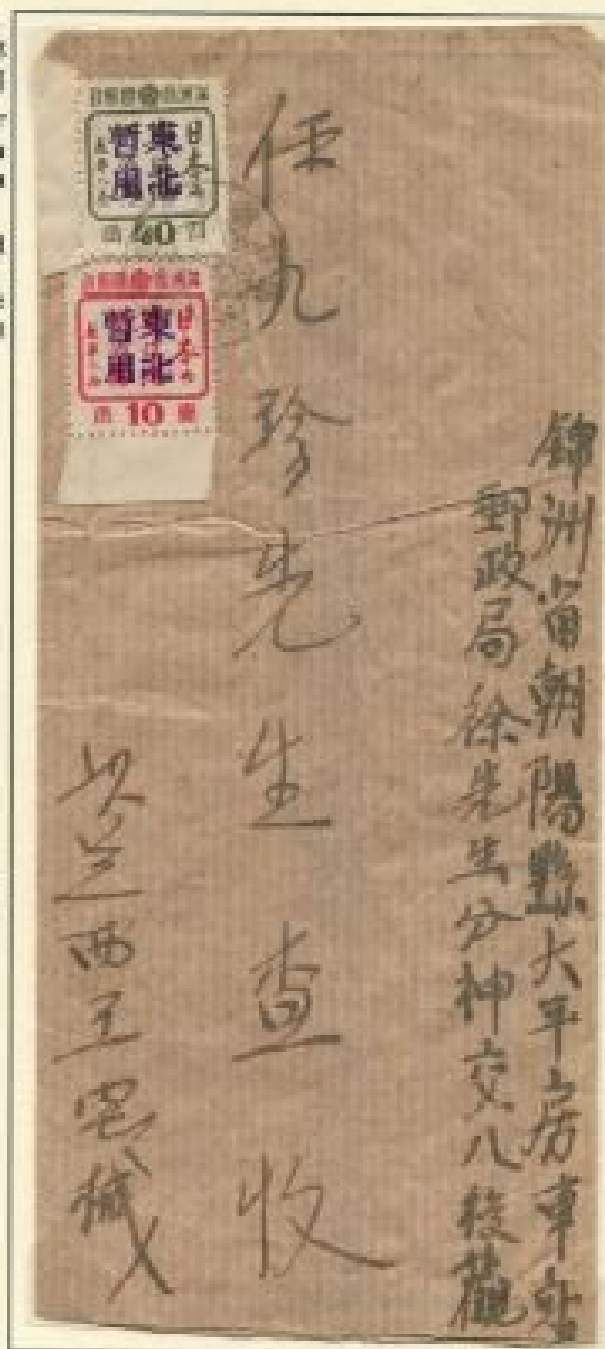 錦洲省朝陽縣大平房車站
郵政局徐先生分神交八稜觀
任九珍先生查收
西王宅緘
東北
暫用
40
東北
暫用
10